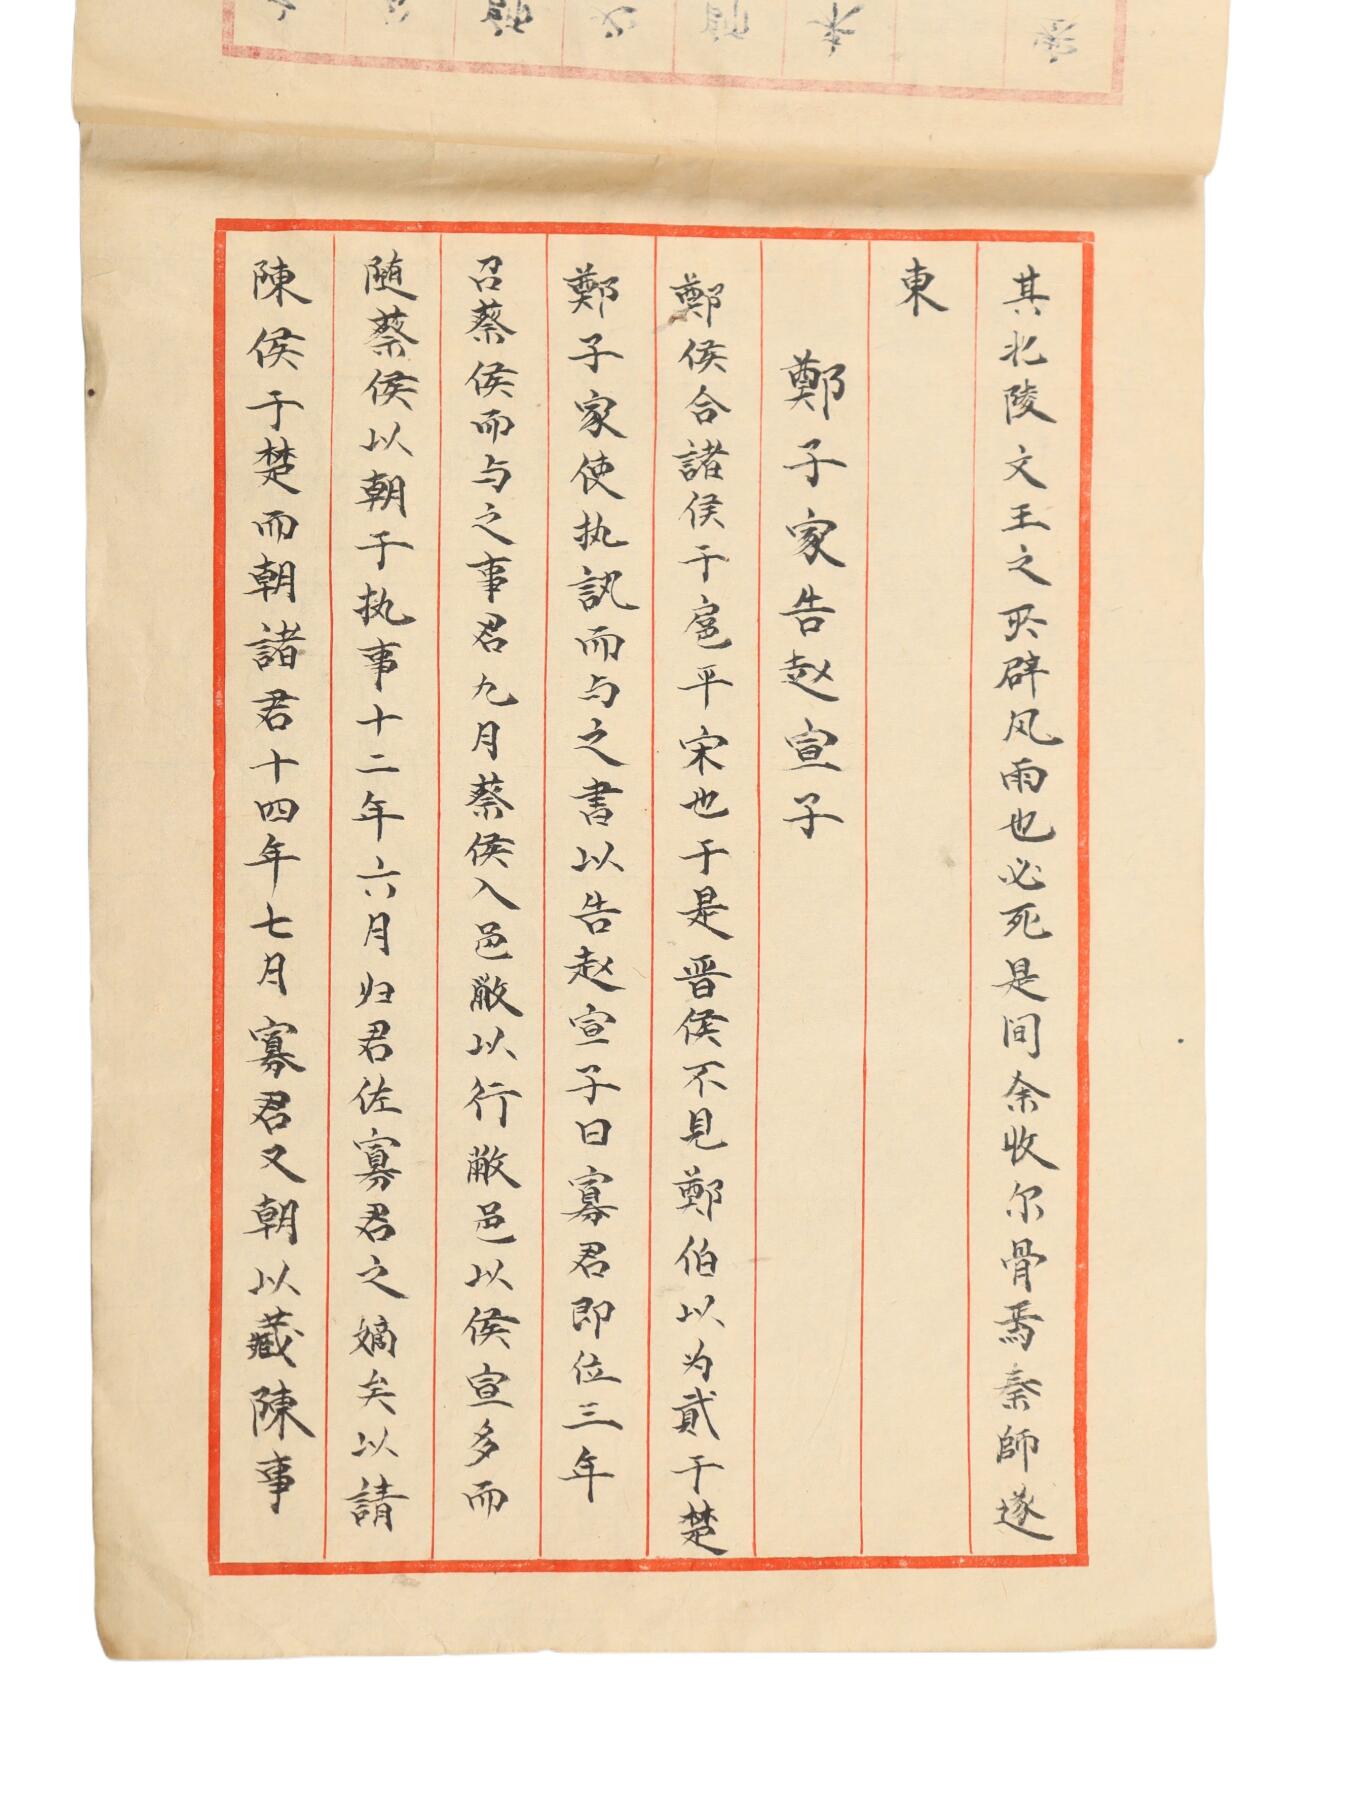 其北陵文王之所辟风雨也必死是间余收尔骨焉秦師遂
東
鄭子家告赵宣子
鄭侯合諸侯于扈平宋也于是晋侯不見鄭伯以为貳于楚
鄭子家使执訊而与之書以告赵宣子曰寡君即位三年
召蔡侯而与之事君九月蔡侯入邑敝以行敝邑以侯宣多而
随蔡侯以朝于执事十二年六月归君佐寡君之嫡矣以請
陳侯于楚而朝諸君十四年七月寡君又朝以藏陳事